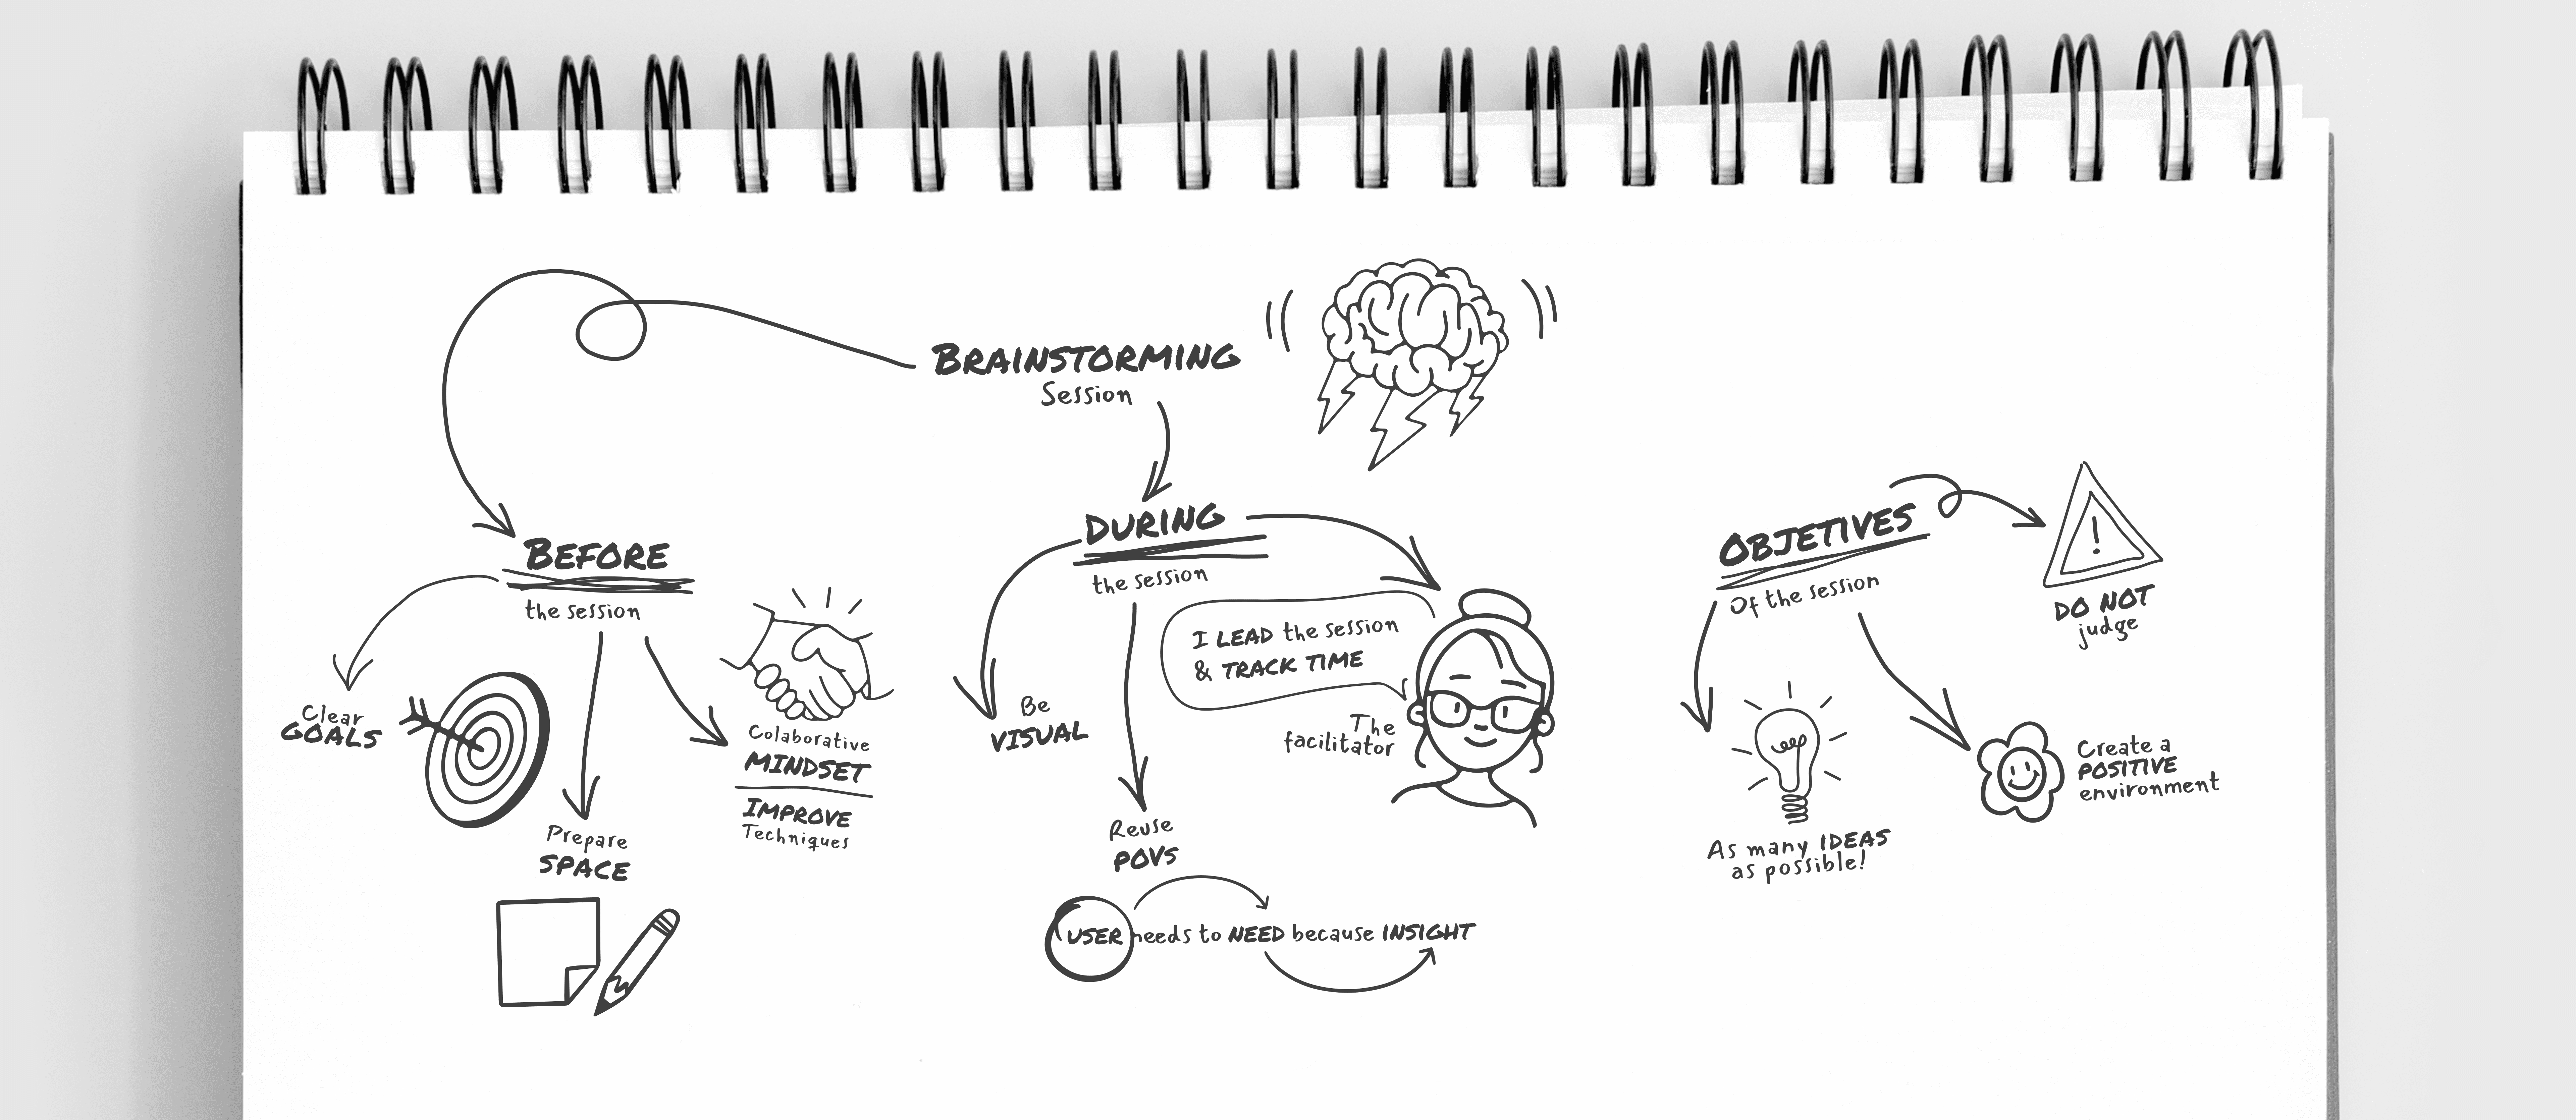 BRAINSTORMING
Session
BEFORE
the session
Clear
GOALS
Prepare
SPACE
Colaborative
MINDSET
IMPROVE
Techniques
DURING
the session
Be
VISUAL
Reuse
POVs
USER needs to NEED because INSIGHT
I LEAD the session
& TRACK TIME
The
facilitator
OBJETIVES
Of the session
As many IDEAS
as possible!
Create a
POSITIVE
environment
!
DO NOT
judge